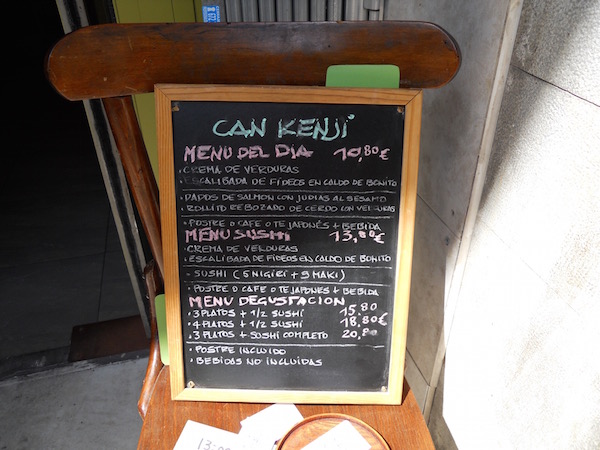 CAN KENJI
MENU DEL DIA 10,80€
· CREMA DE VERDURAS
· ESCALIBADA DE FIDEOS EN CALDO DE BONITO
· DADOS DE SALMON CON JUDIAS AL SESAMO
· ROLLITO REBOZADO DE CERDO CON VERDURAS
· POSTRE O CAFE O TE JAPONÉS + BEBIDA
MENU SUSHI 13,00€
· CREMA DE VERDURAS
· ESCALIBADA DE FIDEOS EN CALDO DE BONITO
· SUSHI (5 NIGIRI + 9 MAKI)
· POSTRE O CAFE O TE JAPONES + BEBIDA
MENU DEGUSTACION
· 3 PLATOS + 1/2 SUSHI 15,80
· 4 PLATOS + 1/2 SUSHI 18,80€
· 3 PLATOS + SUSHI COMPLETO 20,80
· POSTRE INCLUIDO
· BEBIDAS NO INCLUIDAS